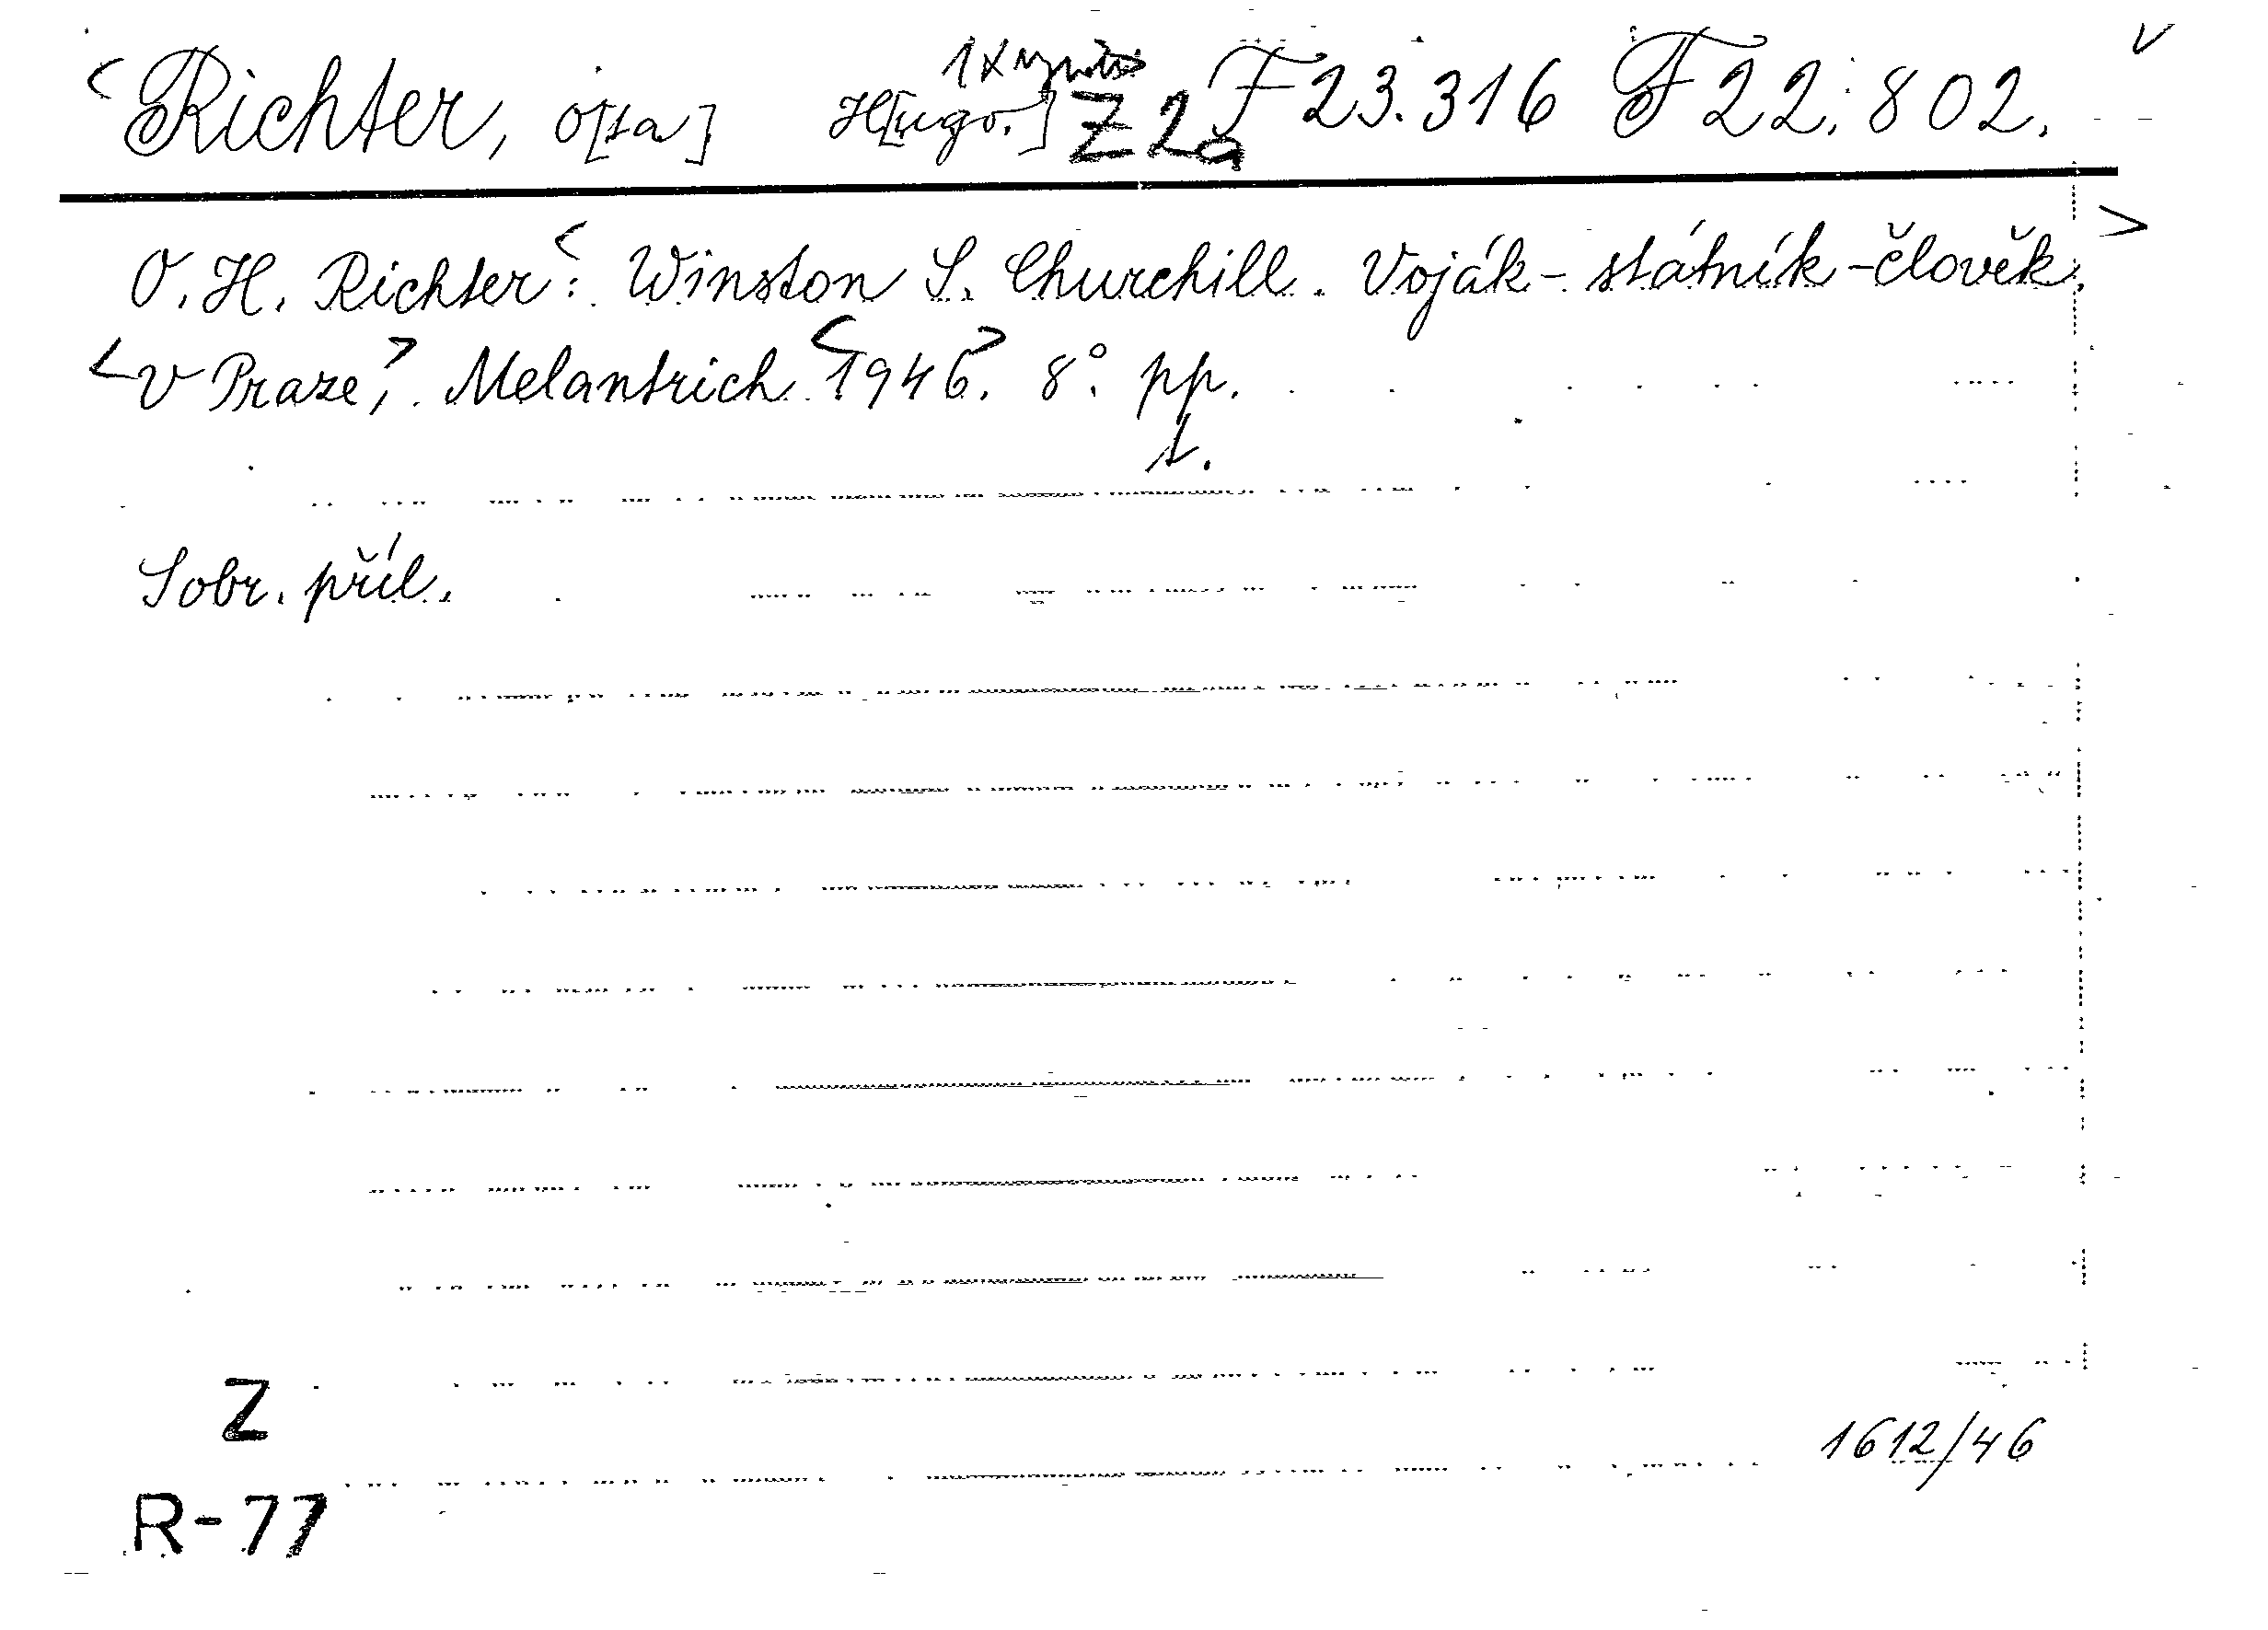 < Richter, O[ta] H[ugo.] 1x Z 2a F 23.316 F 22.802. v
O. H. Richter <: Winston S. Churchill. Voják - státník - člověk. >
< V Praze, > Melantrich < 1946 >. 8°. pp.
1.
Sobr. příl.
Z
1612/46
R-77